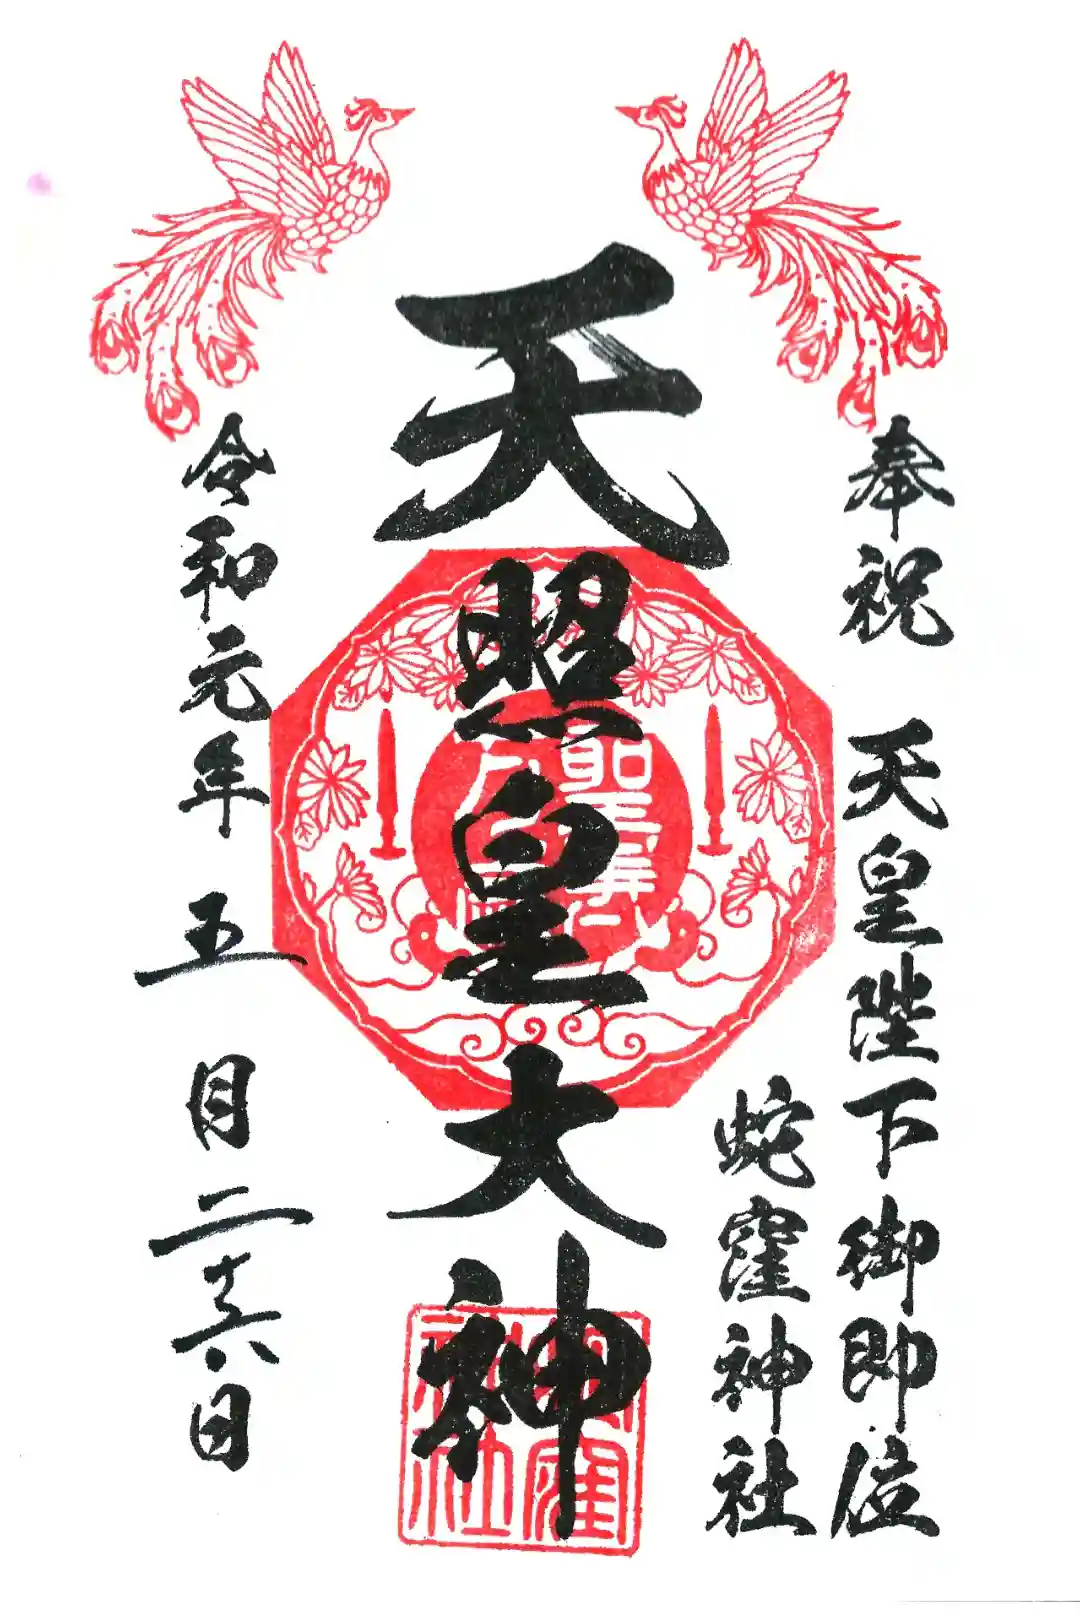 奉祝 天皇陛下御即位
蛇窪神社
天照皇大神
令和元年 五 月 二十六 日